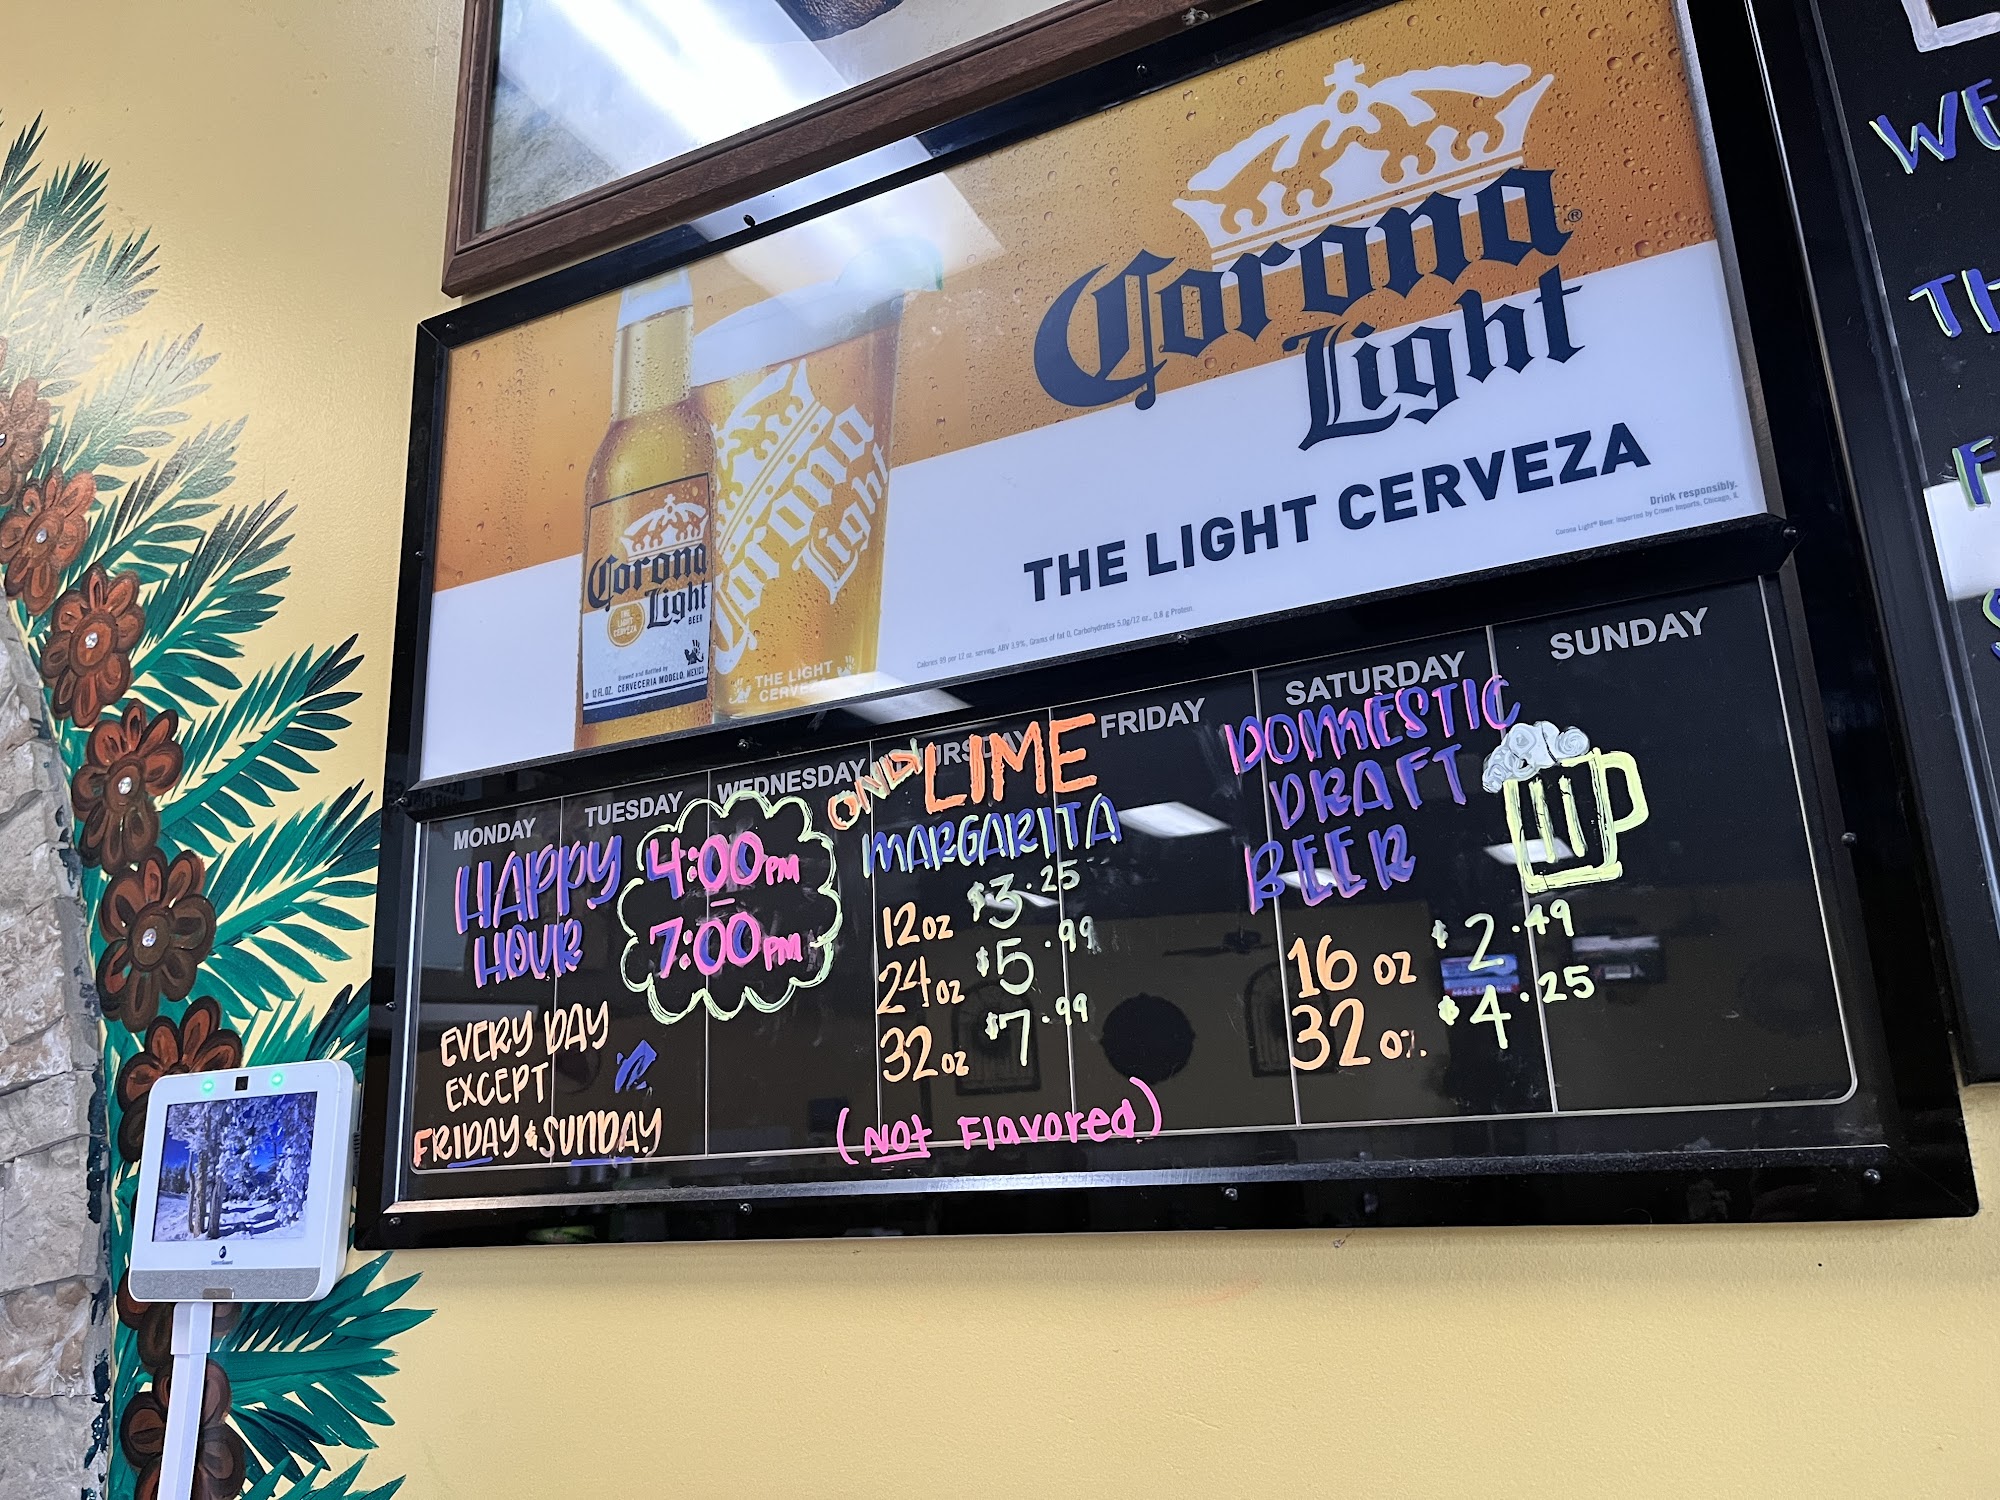 Corona®
Light
THE LIGHT CERVEZA
Drink responsibly.
Corona Light® Beer. Imported by Crown Imports, Chicago, IL
Calories 99 per 12 oz. serving, ABV 3.9%, Grams of fat 0, Carbohydrates 5.0g/12 oz., 0.8 g Protein.
Corona
Light
BEER
THE
LIGHT
CERVEZA
Brewed and Bottled by
12 FL. OZ. CERVECERIA MODELO, MEXICO
Corona
Light
THE LIGHT
CERVEZA
MONDAY
TUESDAY
WEDNESDAY
THURSDAY
FRIDAY
SATURDAY
SUNDAY
HAPPY
HOUR
4:00PM
-
7:00PM
EVERY DAY
EXCEPT
FRIDAY & SUNDAY
ONLY LIME
MARGARITA
12oz $3.25
24oz $5.99
32oz $7.99
(NOT Flavored)
DOMESTIC
DRAFT
BEER
16 oz $2.49
32 oz. $4.25
WE
TH
F
S